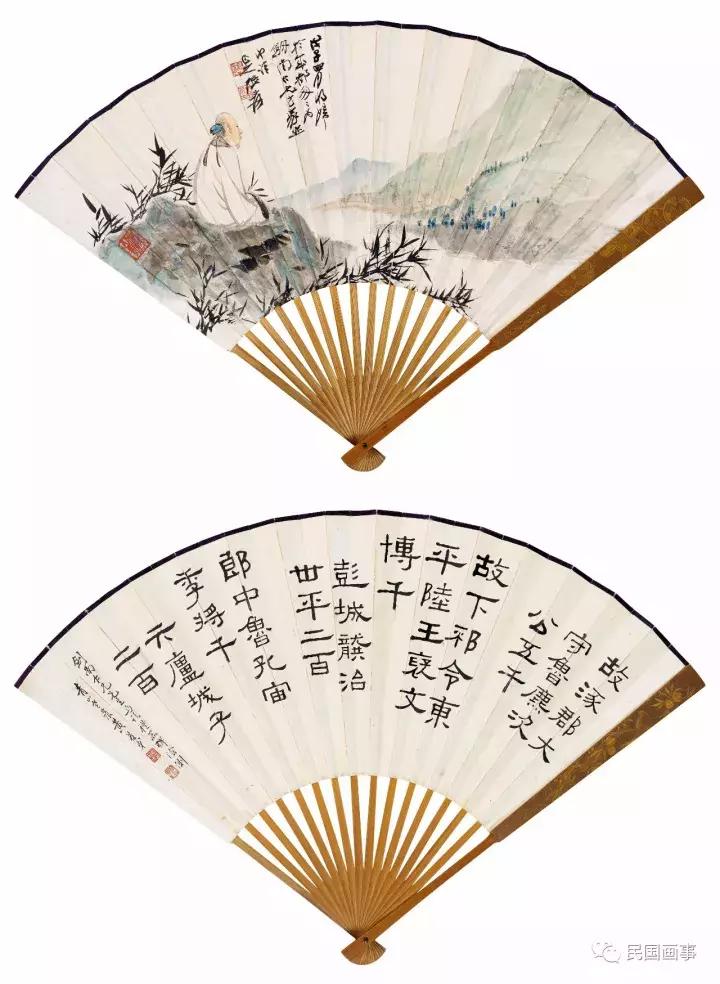 戊子四月將歸
故涿郡大
守魯麃次
公五千
故下邳令東
平陸王褒文
博千
彭城龔治
世平二百
郎中魯孔宙
季將千
亓廬城子
二百
民国画事